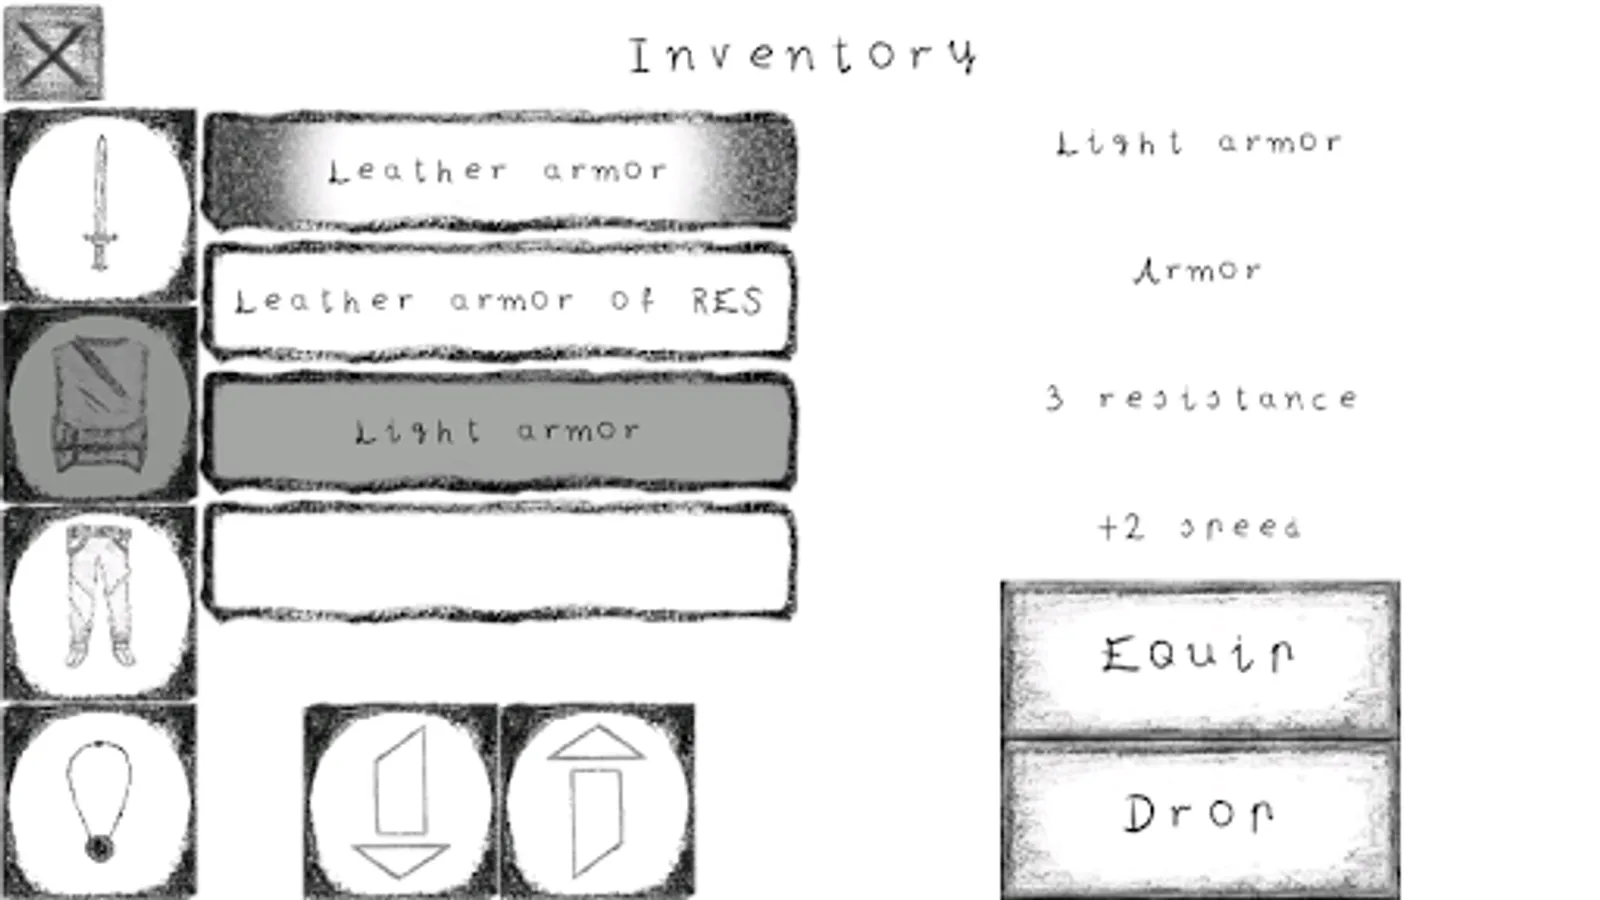 Inventory
Leather armor
Leather armor of RES
Light armor
Light armor
Armor
3 resistance
+2 speed
Equip
Drop